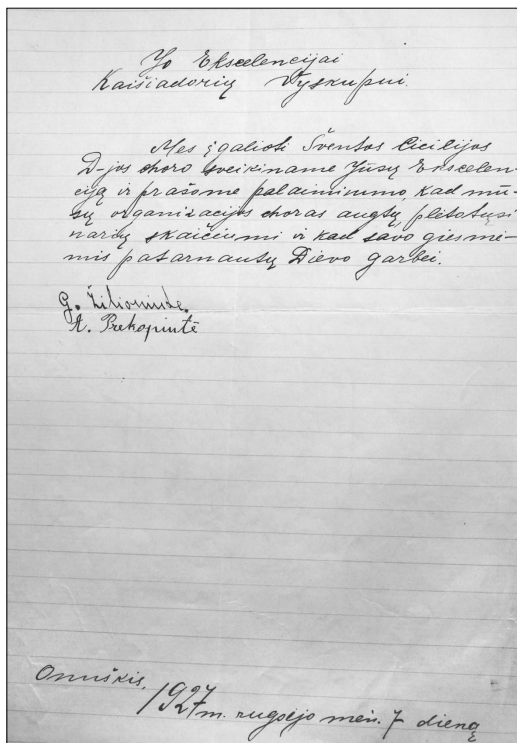 Jo Ekscelencijai
Kaišiadorių Vyskupui.
Mes įgalioti Šventos Cicilijos
D-jos choro sveikiname Jūsų Ekscelen-
ciją ir prašome palaiminimo, kad mū-
sų organizacijos choras augtų, plėtotųsi
narių skaičiumi ir kad savo giesmė-
mis patarnautų Dievo garbei.
G. Žilioniutė.
A. Prekopiutė
Onuškis,
1927 m. rugsėjo mėn. 7 dieną